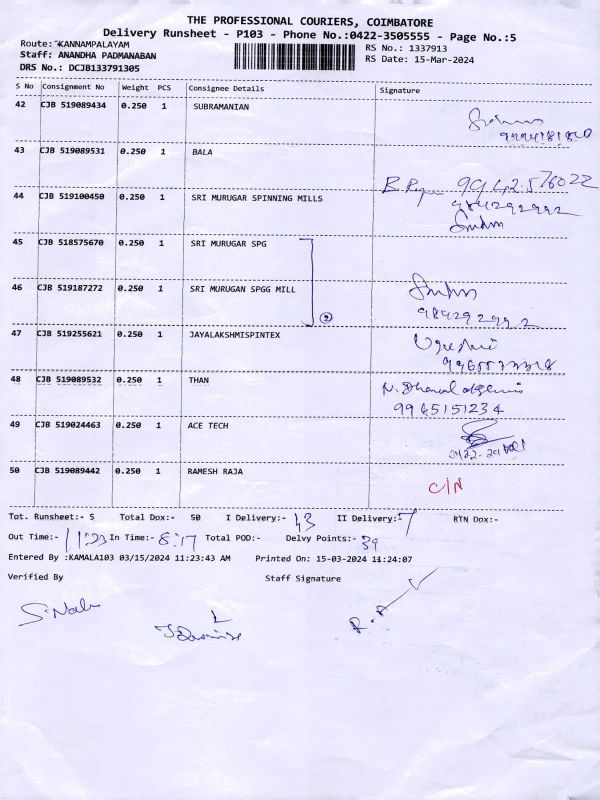 THE PROFESSIONAL COURIERS, COIMBATORE
Delivery Runsheet - P103 - Phone No.:0422-3505555 - Page No.:5
Route: KANNAMPALAYAM
RS No.: 1337913
Staff: ANANDHA PADMANABAN
RS Date: 15-Mar-2024
DRS No.: DCJB133791305
S No Consignment No Weight PCS Consignee Details Signature
42 CJB 519089434 0.250 1 SUBRAMANIAN
43 CJB 519089531 0.250 1 BALA
99425 76022
44 CJB 519100450 0.250 1 SRI MURUGAR SPINNING MILLS
984292992
45 CJB 518575670 0.250 1 SRI MURUGAR SPG
46 CJB 519187272 0.250 1 SRI MURUGAN SPGG MILL
2
984292992
47 CJB 519255621 0.250 1 JAYALAKSHMISPINTEX
48 CJB 519089532 0.250 1 THAN
9965151234
49 CJB 519024463 0.250 1 ACE TECH
50 CJB 519089442 0.250 1 RAMESH RAJA
C/N
Tot. Runsheet:- 5 Total Dox:- 50 I Delivery:- 43 II Delivery:- 7 RTN Dox:-
Out Time:- 11:23 In Time:- 8:17 Total POD:- Delvy Points:- 39
Entered By :KAMALA103 03/15/2024 11:23:43 AM Printed On: 15-03-2024 11:24:07
Verified By Staff Signature